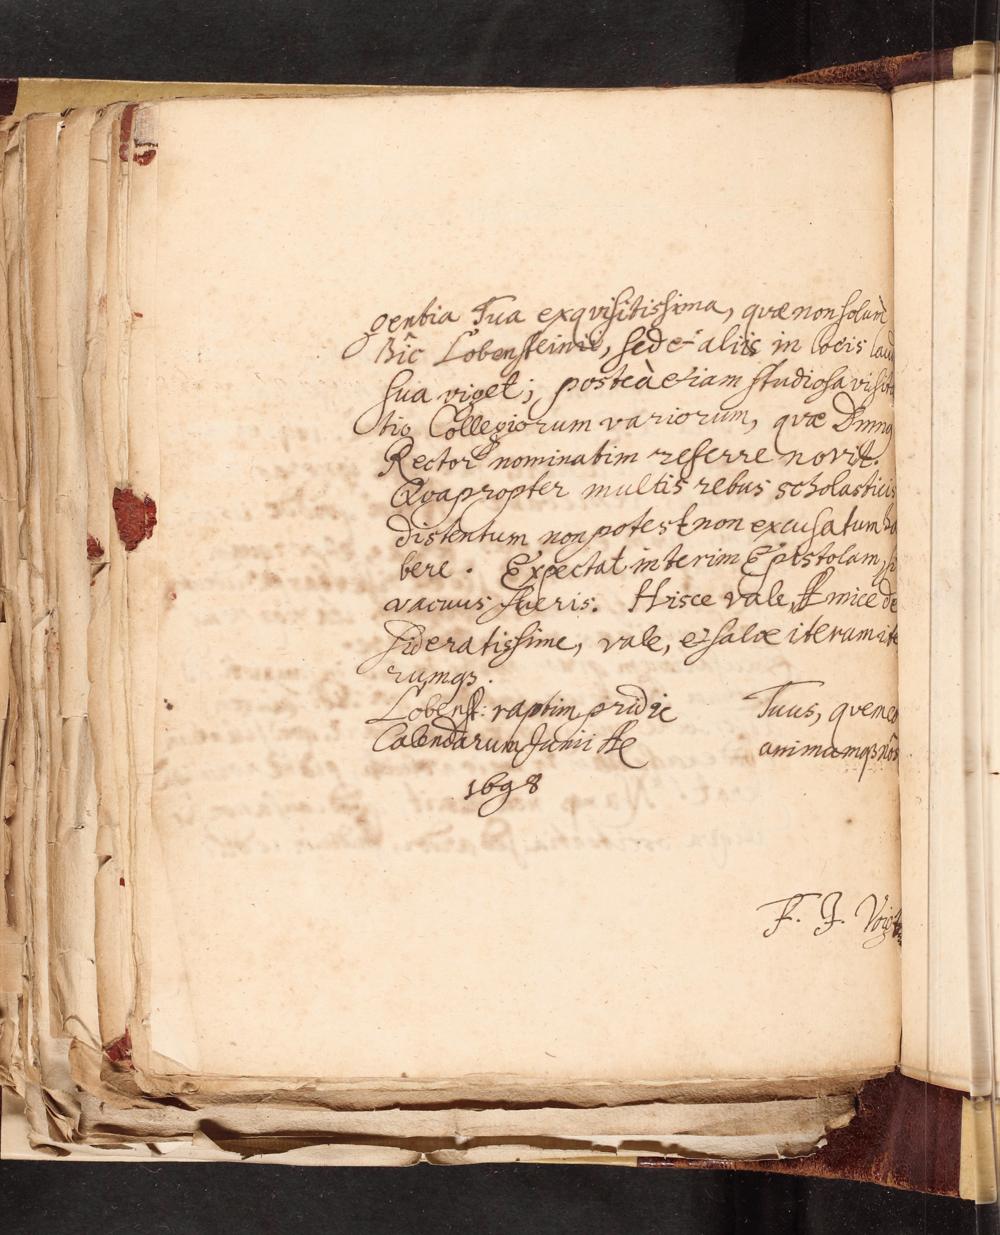 gentia Tua exqvisitissima, quæ non solum
hîc Lobensteinii, sed & aliis in locis lau
sua viget; posteà etiam studiosa visita
tio Collegiorum variorum, quæ Dmng
Rector nominatim referre novit.
Qvapropter multis rebus scholasticis
distentum non potest non excusatum ha
bere. Expectat interim Epistolam, si
vacuus fueris. Hisce vale, Amice de
sideratissime, vale, & salve iterum ite
rumqz.
Lobenst: raptim pridie
Calendarum Junii Ae
1698
Tuus, quem
animamqz nôs
F. J. Voigt